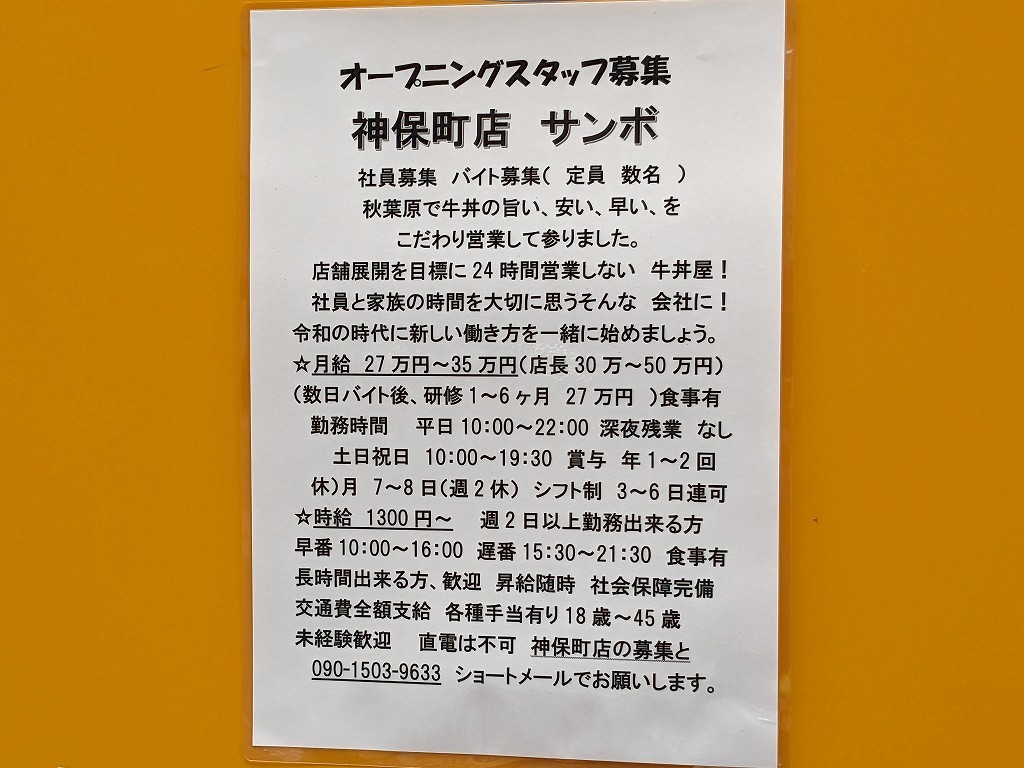 オープニングスタッフ募集
神保町店 サンボ
社員募集 バイト募集( 定員 数名 )
秋葉原で牛丼の旨い、安い、早い、を
こだわり営業して参りました。
店舗展開を目標に24時間営業しない 牛丼屋!
社員と家族の時間を大切に思うそんな 会社に!
令和の時代に新しい働き方を一緒に始めましょう。
☆月給 27万円~35万円(店長30万~50万円)
(数日バイト後、研修1~6ヶ月 27万円 )食事有
勤務時間 平日10:00~22:00 深夜残業 なし
土日祝日 10:00~19:30 賞与 年1~2回
休)月 7~8日(週2休) シフト制 3~6日連可
☆時給 1300円~ 週2日以上勤務出来る方
早番10:00~16:00 遅番15:30~21:30 食事有
長時間出来る方、歓迎 昇給随時 社会保障完備
交通費全額支給 各種手当有り18歳~45歳
未経験歓迎 直電は不可 神保町店の募集と
090-1503-9633 ショートメールでお願いします。